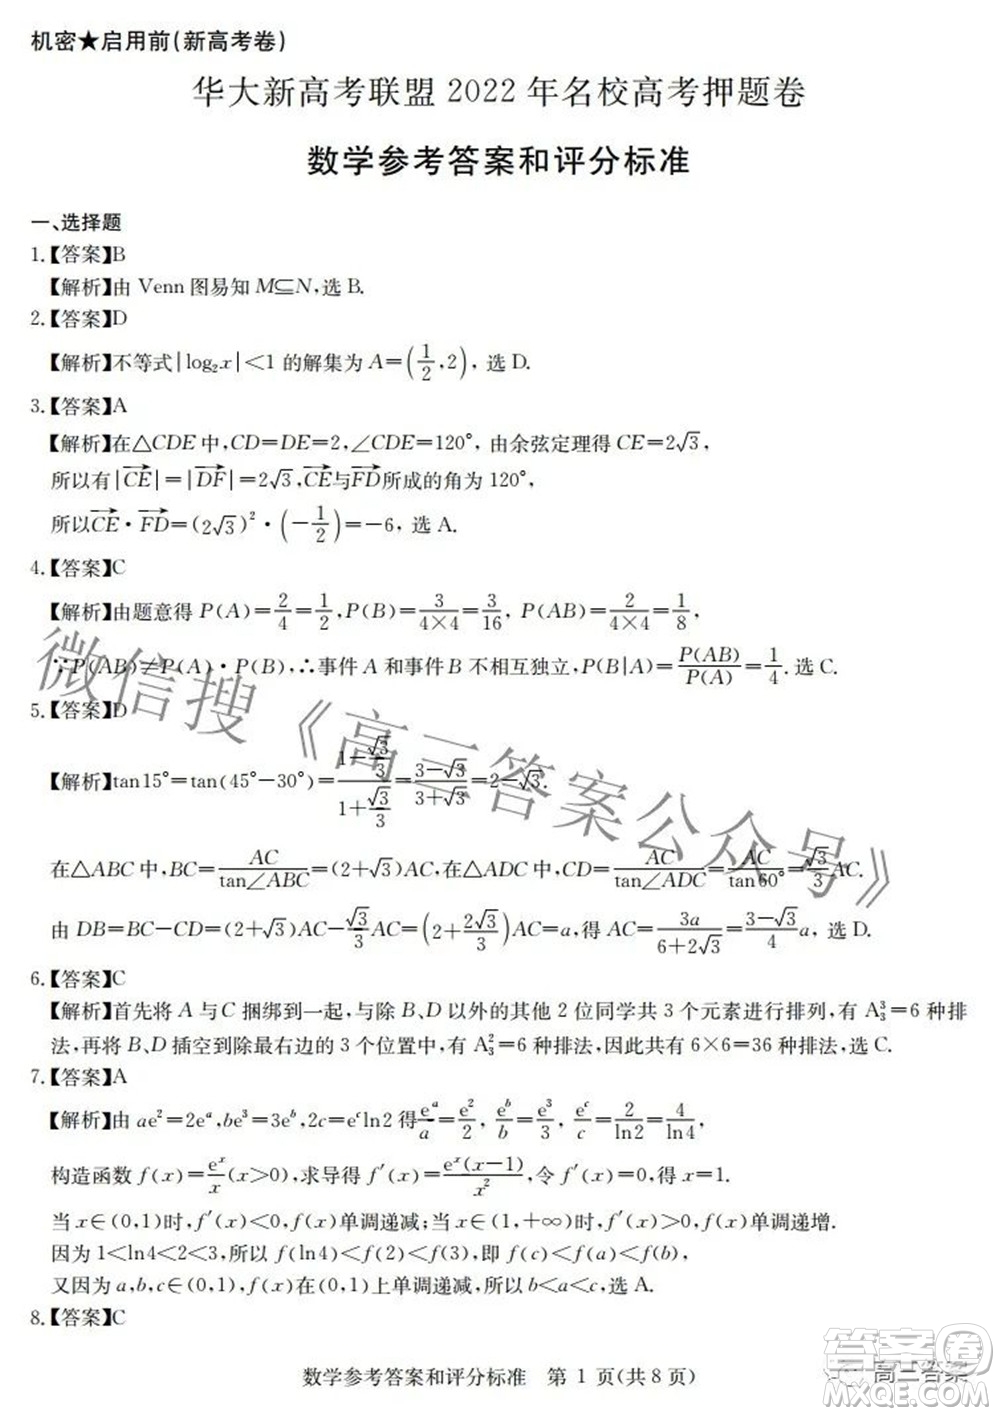 机密★启用前(新高考卷)
华大新高考联盟 2022 年名校高考押题卷
数学参考答案和评分标准
一、选择题
1.【答案】B
【解析】由 Venn 图易知 M⊆N,选 B.
2.【答案】D
【解析】不等式|log₂x|<1 的解集为 A=(1/2,2), 选 D.
3.【答案】A
【解析】在△CDE 中,CD=DE=2,∠CDE=120°, 由余弦定理得 CE=2√3,
所以有|CE→|=|DF→|=2√3,CE→与FD→所成的角为 120°,
所以CE→·FD→=(2√3)²·(-1/2)=-6, 选 A.
4.【答案】C
【解析】由题意得 P(A)=2/4=1/2,P(B)=3/(4×4)=3/16, P(AB)=2/(4×4)=1/8,
∵P(AB)≠P(A)·P(B),∴事件 A 和事件 B 不相互独立, P(B|A)=P(AB)/P(A)=1/4.选 C.
5.【答案】D
【解析】tan15°=tan(45°-30°)=(1-√3/3)/(1+√3/3)=(3-√3)/(3+√3)=2-√3.
在△ABC 中,BC=AC/tan∠ABC=(2+√3)AC,在△ADC 中,CD=AC/tan∠ADC=AC/tan60°=√3/3 AC.
由 DB=BC-CD=(2+√3)AC-√3/3 AC=(2+2√3/3)AC=a,得 AC=3a/(6+2√3)=(3-√3)/4 a, 选 D.
6.【答案】C
【解析】首先将 A 与 C 捆绑到一起,与除 B、D 以外的其他 2 位同学共 3 个元素进行排列,有 A₃³=6 种排
法,再将 B、D 插空到除最右边的 3 个位置中,有 A₃²=6 种排法,因此共有 6×6=36 种排法,选 C.
7.【答案】A
【解析】由 ae²=2eᵃ,be³=3eᵇ,2c=eᶜln2 得eᵃ/a=e²/2, eᵇ/b=e³/3, eᶜ/c=2/ln2=4/ln4,
构造函数 f(x)=eˣ/x(x>0),求导得 f′(x)=eˣ(x-1)/x²,令 f′(x)=0,得 x=1.
当 x∈(0,1)时,f′(x)<0,f(x)单调递减;当 x∈(1,+∞)时,f′(x)>0,f(x)单调递增.
因为 1<ln4<2<3,所以 f(ln4)<f(2)<f(3),即 f(c)<f(a)<f(b),
又因为 a,b,c∈(0,1),f(x)在(0,1)上单调递减,所以 b<a<c,选 A.
8.【答案】C
数学参考答案和评分标准 第 1 页(共 8 页)
微信搜《高三答案公众号》
高三答案